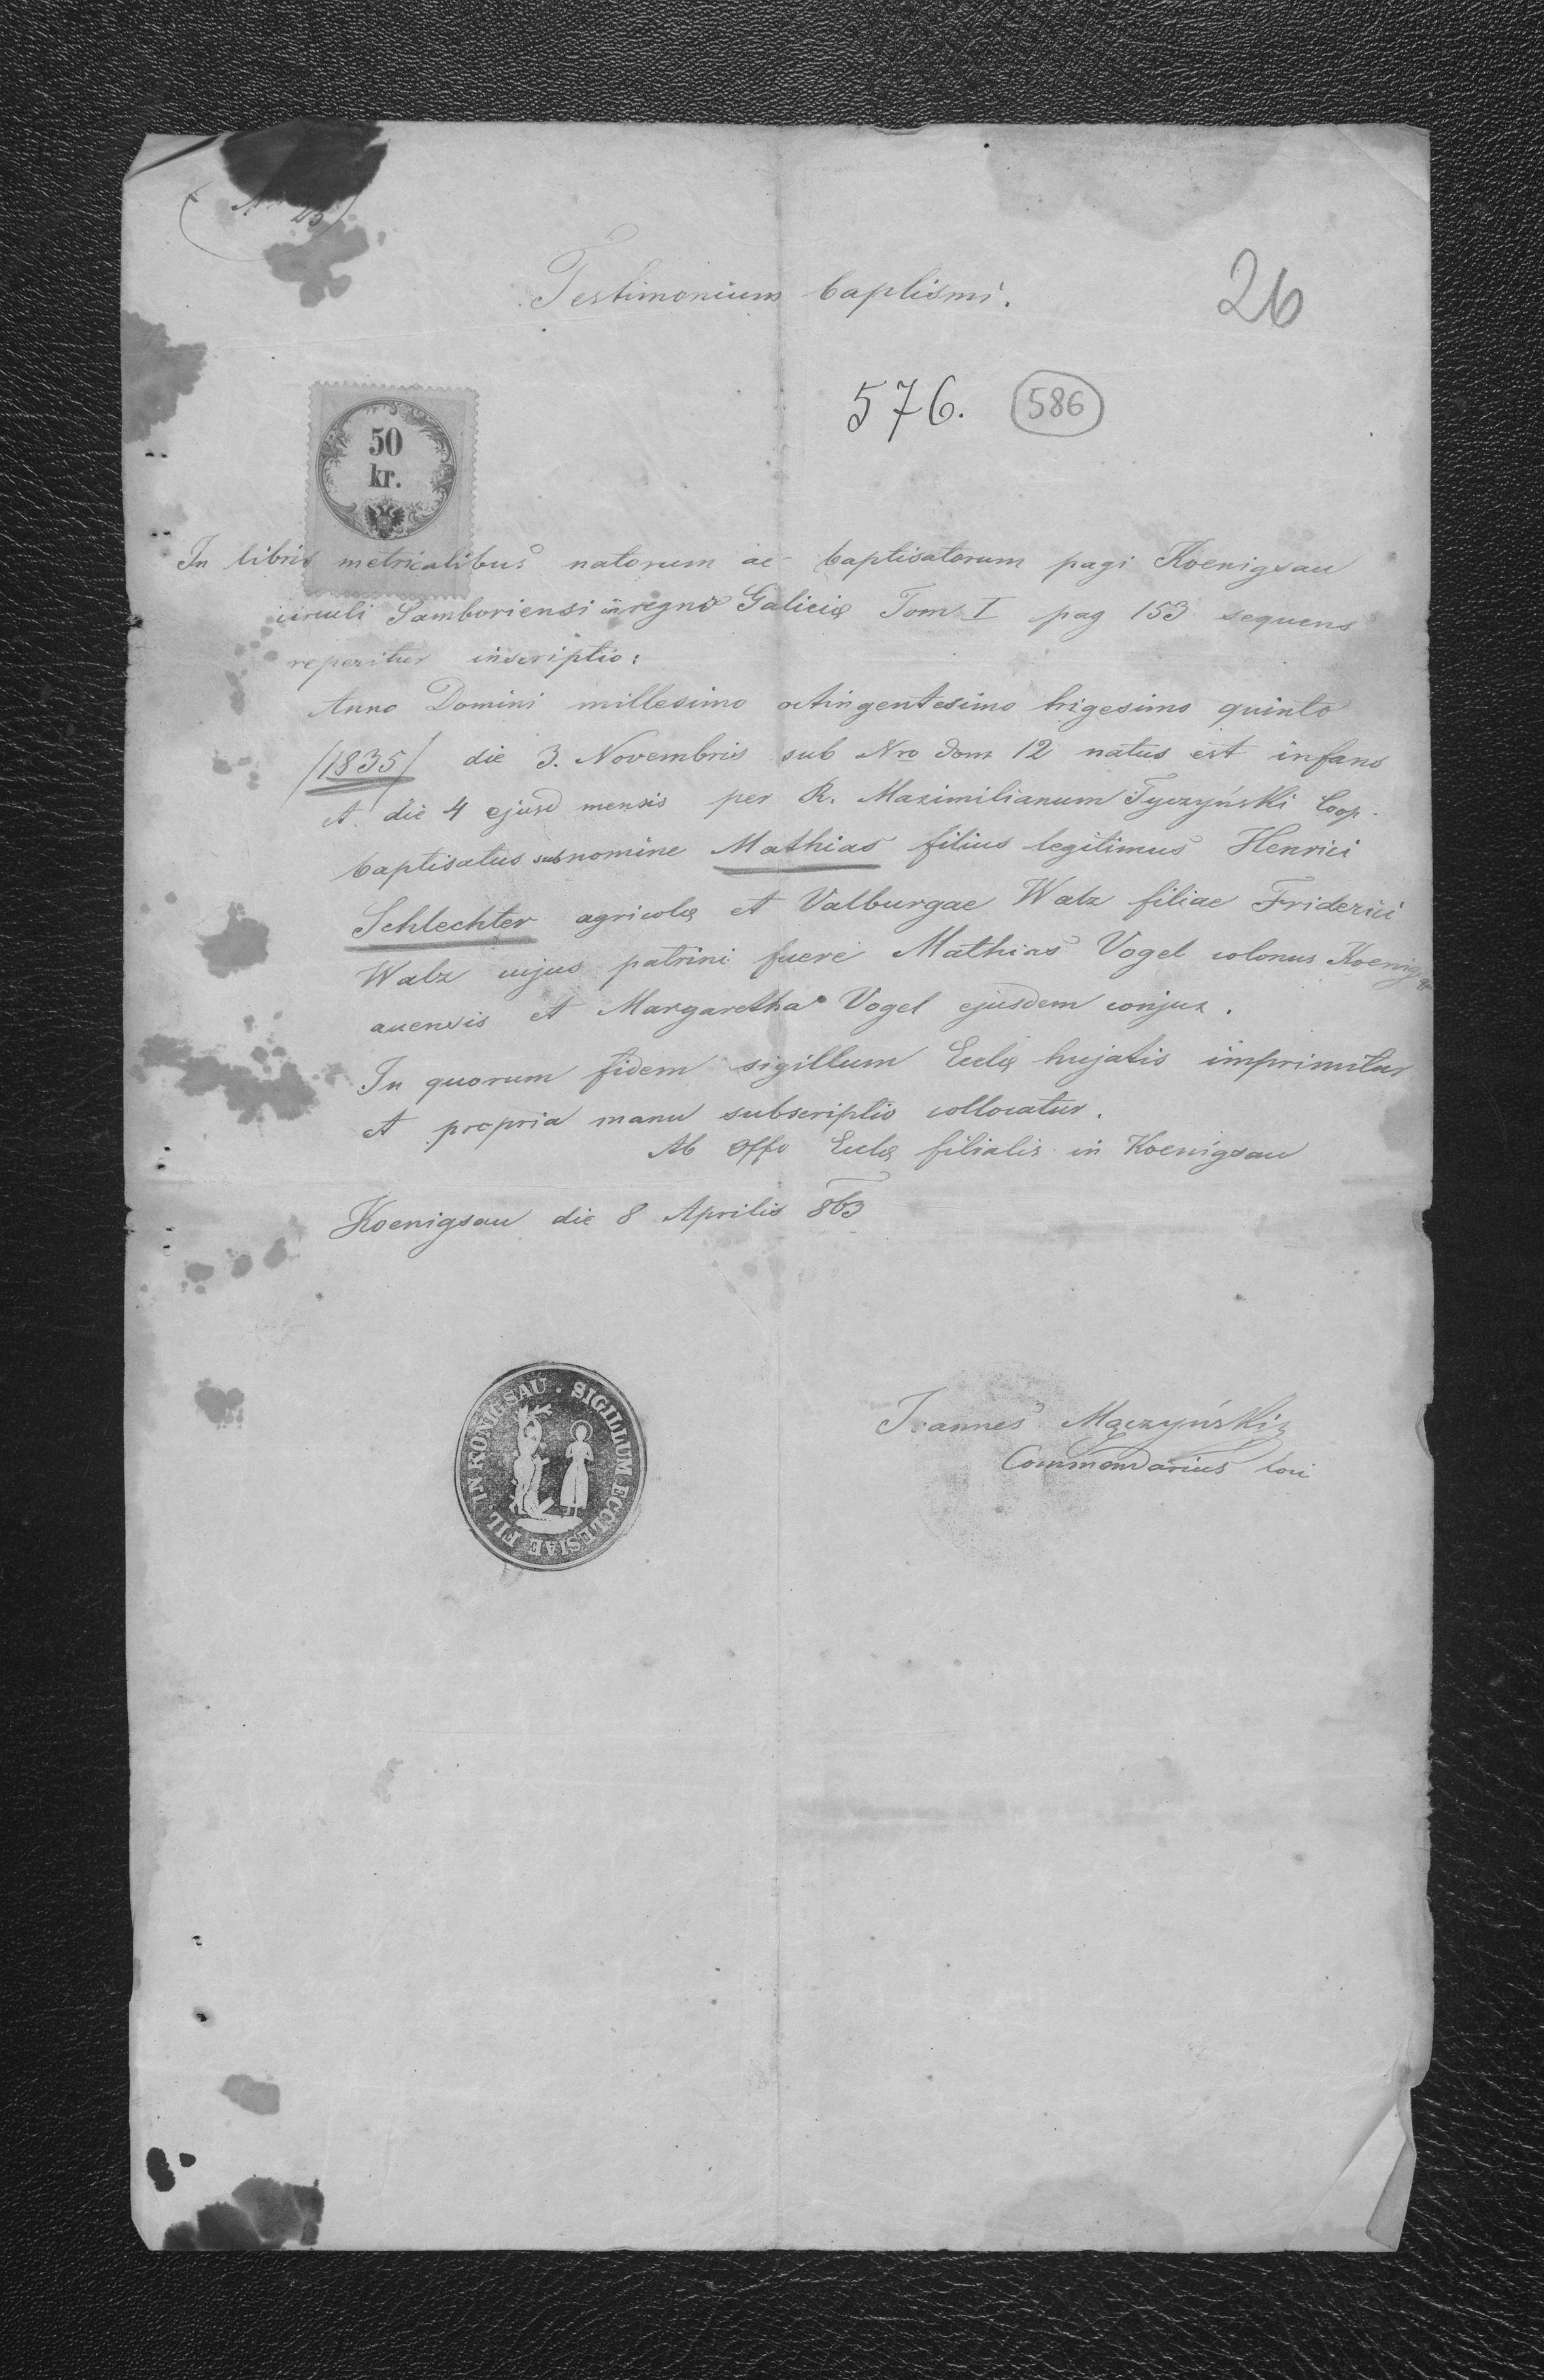 Testimonium baptismi.
26
576. 586
50
kr.
In libris metricalibus natorum ac baptisatorum pagi Koenigsau
circuli Samboriensi in regno Galiciæ Tom I pag 153 sequens
reperitur inscriptio:
Anno Domini millesimo octingentesimo trigesimo quinto
/1835/ die 3. Novembris sub Nro dom 12 natus est infans
et die 4 ejusd mensis per R. Maximilianum Tyczyński Coop.
baptisatus sub nomine Mathias filius legitimus Henrici
Schlechter agricolæ et Valburgae Walz filiae Friderici
Walz cujus patrini fuere Mathias Vogel colonus Koenigs
auensis et Margaretha Vogel ejusdem conjux.
In quorum fidem sigillum Eclæ hujatis imprimitur
et propria manu subscriptio collocatur.
Ab Offo Eclæ filialis in Koenigsau
Koenigsau die 8 Aprilis 863
SIGILLUM ECCLESIAE FIL. IN KÖNIGSAU.
Joannes Mączyński
Commendarius loci